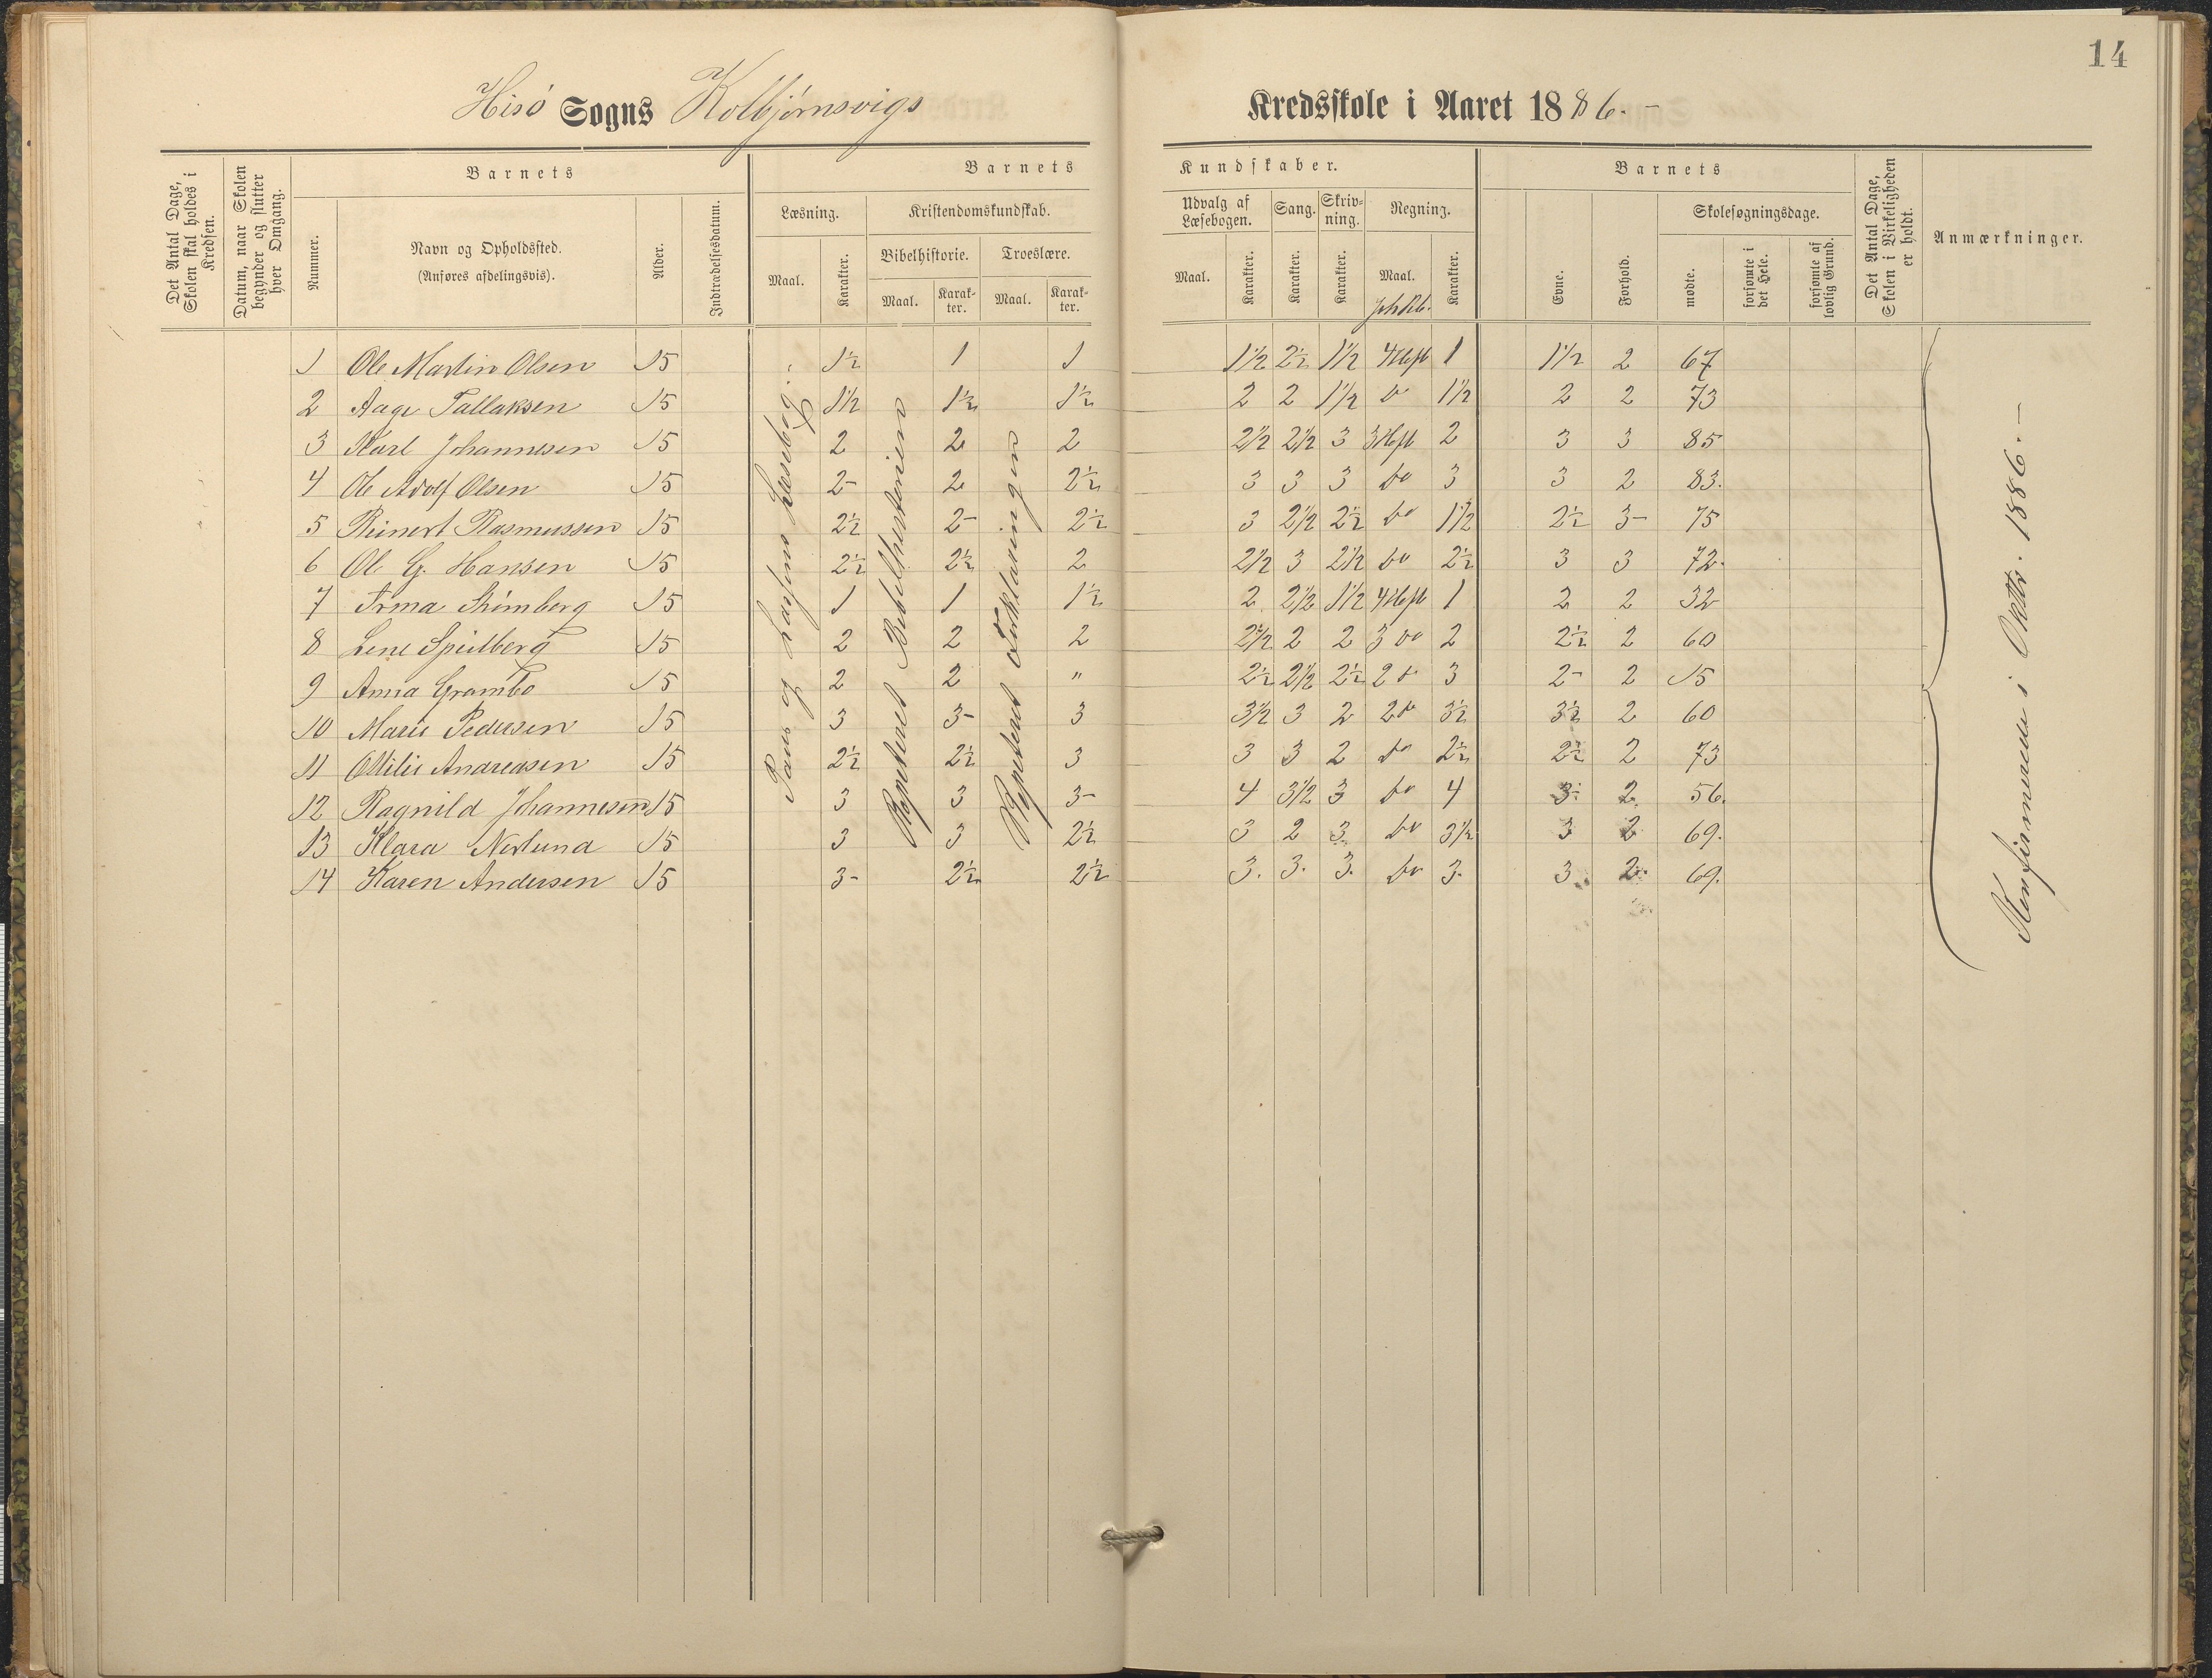 14
Hisö Sogns Kolbjörnsvigs Kredsskole i Aaret 1886.-
Det Antal Dage, Skolen skal holdes i Kredsen.
Datum, naar Skolen begynder og slutter hver Omgang.
Barnets
Nummer.
Navn og Opholdssted.
(Anføres afdelingsvis).
Alder.
Indtrædelsesdatum.
Barnets Kundskaber.
Læsning.
Maal.
Karakter.
Kristendomskundskab.
Bibelhistorie.
Maal.
Karakter.
Troeslære.
Maal.
Karakter.
Udvalg af Læsebogen.
Maal.
Karakter.
Sang.
Karakter.
Skrivning.
Karakter.
Regning.
Maal.
Karakter.
Barnets
Evne.
Forhold.
Skolesøgningsdage.
mødte.
forsømte i det Hele.
forsømte af lovlig Grund.
Det Antal Dage, Skolen i Virkeligheden er holdt.
Anmærkninger.
1 Ole Martin Olsen 15 1½ 1 1 1½ 2½ 1½ 4 Heft 1 1½ 2 67
2 Aage Tallaksen 15 1½ 1½ 1½ 2 2 1½ do 1½ 2 2 73
3 Karl Johannesen 15 2 2 2 2½ 2½ 3 3 Heft 2 3 3 85
4 Ole Adolf Olsen 15 2- 2 2½ 3 3 3 do 3 3 2 83.
5 Reinert Rasmussen 15 2½ 2- 2½ 3 2½ 2½ do 1½ 2½ 3- 75
6 Ole G. Hansen 15 2½ 2½ 2 2½ 3 2½ do 2½ 3 3 72.
7 15 1 1 1½ 2 2½ 1½ 4 Heft 1 2 2 32
8 Lene Spilberg 15 2 2 2 2½ 2 2 3 do 2 2½ 2 60
9 Anna Grambo 15 2 2 " 2½ 2½ 2½ 2 d 3 2- 2 15
10 Marie Pedersen 15 3 3- 3 3½ 3 2 2 d 3½ 3½ 2 60
11 Ottilie Andreasen 15 2½ 2½ 3 3 3 2 do 2½ 2½ 2 73
12 Ragnild Johannesen 15 3 3 3- 4 3½ 3 do 4 3- 2 56.
13 Klara Neslund 15 3 3 2½ 3 2 3 do 3½ 3 2 69.
14 Karen Andersen 15 3- 2½ 2½ 3. 3. 3. do 3. 3 2 69.
og Læsebog.
Repeteret Bibelhistorien
Repeteret Forklaringen
Konfirmerede i Oktbr. 1886.-